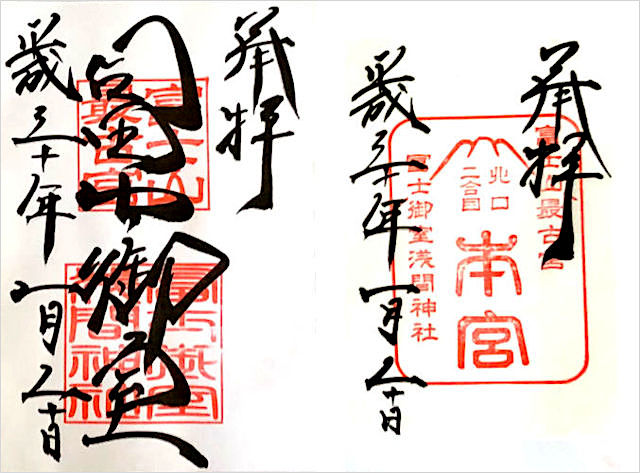 奉拝
冨士御室
富士山
最古宮
平成三十年一月
奉拝
富士山最古宮
北口
二合目
本宮
冨士御室浅間神社
平成三十年一月